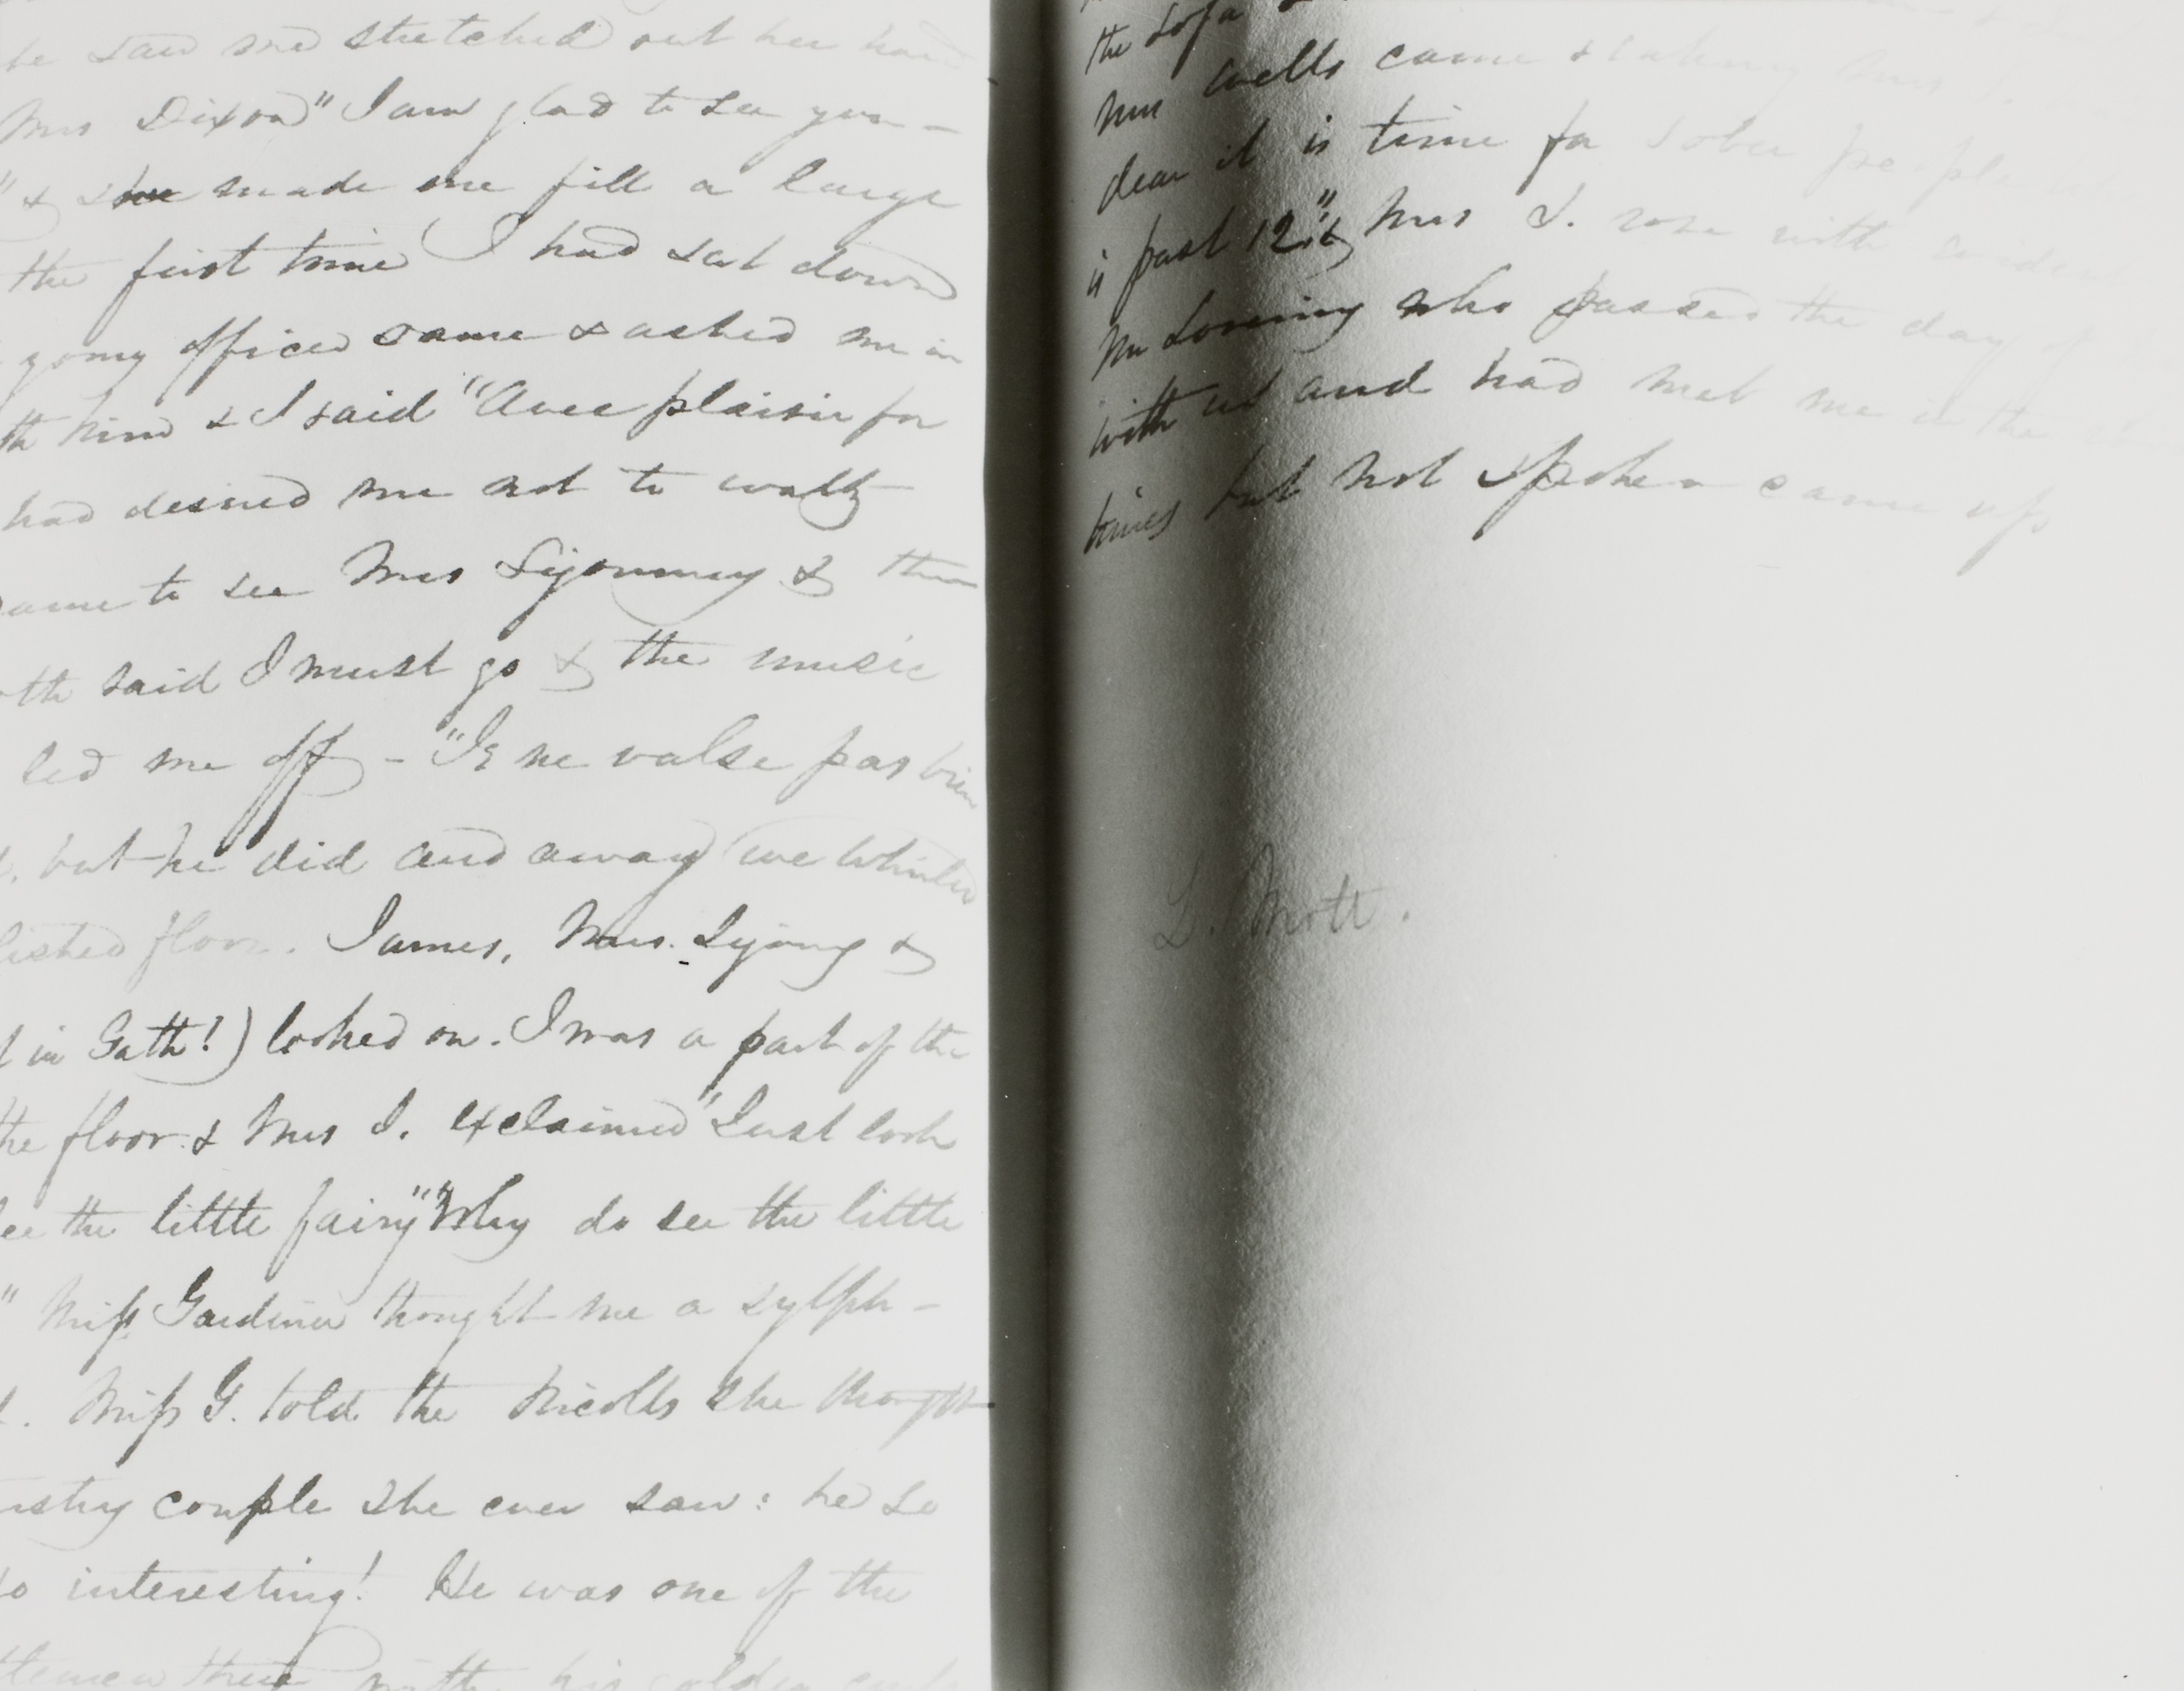 he saw me stretched out her hand
Mrs Dixon" I am glad to see you –
" & she made me fill a large
the first time I had sat down
young officer came & asked me in
th him & I said "Avec plaisir for
had desired me not to waltz
came to see Mrs Sigourney & then
oth said I must go & the music
led me off – "Je ne valse pas bien
but he did and away we whirled
lished floor. James, Mrs. Sigourney &
in Gath!) looked on. I was a part of the
the floor & Mrs S. exclaimed "Just look
see the little fairy" "Why do see the little
" Miss Gardiner thought me a sylph –
. Miss G. told the Nicolls she thought
couple she ever saw: he so
so interesting! He was one of the
ntlemen there with his golden curls
the sofa &
Mrs Wells came & taking Mrs
dear it is time for sober people
is past 12" & Mrs S. rose with
Mr Loring who passed the day
with us and had met me in the
times but not spoken came up
L. Mott.